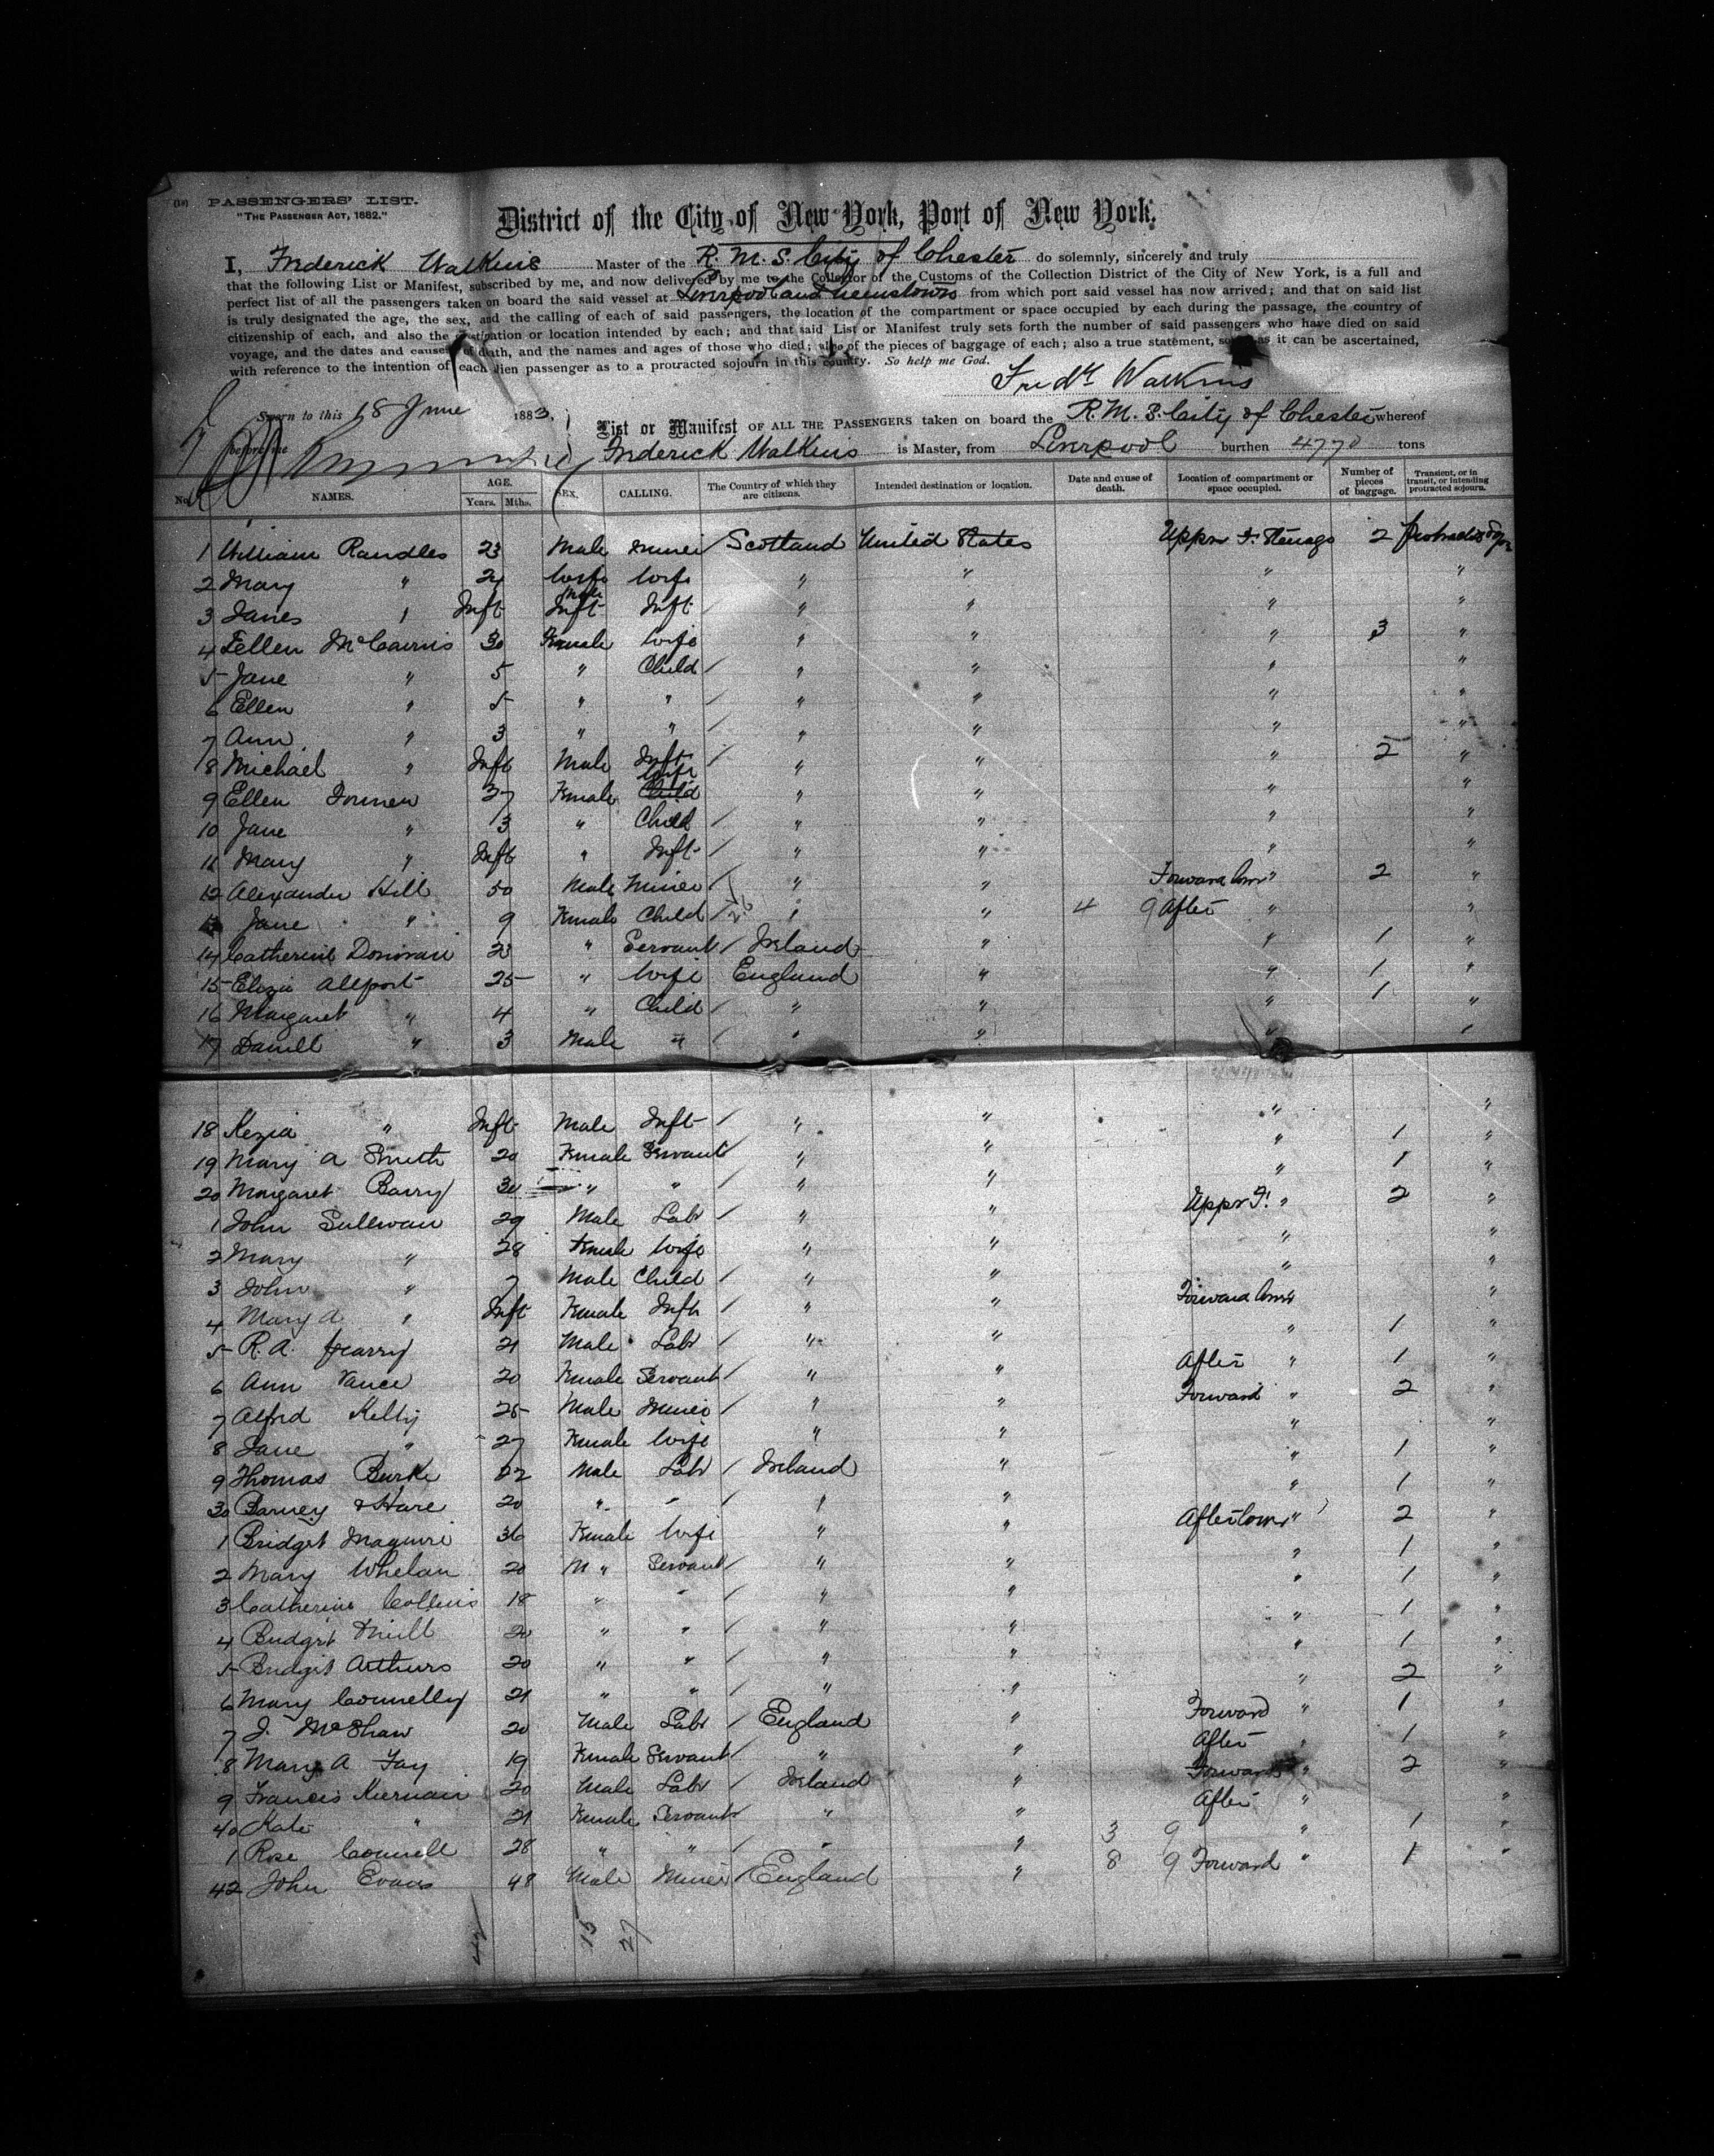 PASSENGERS' LIST.
"THE PASSENGER ACT, 1882."
District of the City of New York, Port of New York.
I, Frederick Watkins Master of the R.M.S. City of Chester do solemnly, sincerely and truly
that the following List or Manifest, subscribed by me, and now delivered by me to the Collector of the Customs of the Collection District of the City of New York, is a full and
perfect list of all the passengers taken on board the said vessel at Liverpool and Queenstown from which port said vessel has now arrived; and that on said list
is truly designated the age, the sex, and the calling of each of said passengers, the location of the compartment or space occupied by each during the passage, the country of
citizenship of each, and also the destination or location intended by each; and that said List or Manifest truly sets forth the number of said passengers who have died on said
voyage, and the dates and causes of death, and the names and ages of those who died; also of the pieces of baggage of each; also a true statement, so far as it can be ascertained,
with reference to the intention of each alien passenger as to a protracted sojourn in this country. So help me God.
Fredk Watkins
Sworn to this 18 June 1883,
before me
List or Manifest OF ALL THE PASSENGERS taken on board the R.M.S. City of Chester whereof
Frederick Watkins is Master, from Liverpool burthen 4770 tons
No. NAMES. AGE. Years. Mths. SEX. CALLING. The Country of which they are citizens. Intended destination or location. Date and cause of death. Location of compartment or space occupied. Number of pieces of baggage. Transient, or in transit, or intending protracted sojourn.
1 William Randles 23 Male Miner / Scotland United States Upper F. Steerage 2
2 Mary " 24 Wife Wife " " " "
3 James " Inft Male Inft Inft / " " " "
4 Ellen McCairns 30 Female Wife " " " 3 "
5 Jane " 5 " Child / " " " "
6 Ellen " 5 " " / " " " "
7 Ann " 3 " " / " " " "
8 Michael " Inft Male Inft / " " " 2 "
9 Ellen 27 Female Wife Child " " " "
10 Jane " 3 " Child / " " " "
11 Mary " Inft " Inft / " " " "
12 Alexander Hill 50 Male Miner / " " Forward " 2 "
13 Jane " 9 Female Child / " " 4 9 After " "
14 Catherine Donovan 23 " Servant / Ireland " " 1 "
15 Eliza Allport 25 " Wife England " " 1 "
16 Margaret " 4 " Child / " " " 1 "
17 Daniell " 3 Male " / " " " "
18 Kezia " Inft Male Inft / " " " "
19 Mary A Smith 20 Female Servant / " " " 1 "
20 Margaret Barry 30 " " / " " " 1 "
1 John Sullivan 29 Male Labr / " " Upper F. " 2 "
2 Mary " 28 Female Wife " " " "
3 John " 7 Male Child / " " " "
4 Mary A " Inft Female Inft / " " Forward "
5 R.A. 21 Male Labr / " " " 1 "
6 Ann Vance 20 Female Servant / " " After " 1 "
7 Alfred Kelly 25 Male Miner / " " Forward " 2 "
8 Jane " 27 Female Wife " " " "
9 Thomas Burke 22 Male Labr / Ireland " " 1 "
30 Barney O'Hare 20 " " / " " " 1 "
1 Bridget Maguire 36 Female Wife " " After " 2 "
2 Mary Whelan 20 " Servant / " " " 1 "
3 Catherine Collins 18 " " / " " " 1 "
4 Bridget 20 " " / " " " 1 "
5 Bridget Arthurs 20 " " / " " " 1 "
6 Mary Connelly 21 " " / " " " 2 "
7 J. McShaw 20 Male Labr / England " Forward " 1 "
8 Mary A Fay 19 Female Servant / " " After " 1 "
9 Francis Kiernan 20 Male Labr / Ireland " Forward " 2 "
40 Kate " 21 Female Servant / " " After " "
1 Rose Connell 28 " " / " " 3 9 " 1 "
42 John Evans 48 Male Miner / England " 8 9 Forward " 1 "
42 15 27